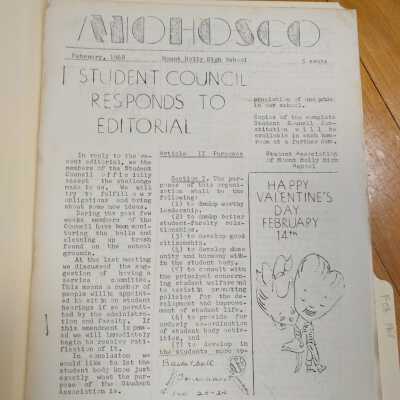 MOHOSCO
February, 1968 Mount Holly High School 5 cents
STUDENT COUNCIL
RESPONDS TO
EDITORIAL
In reply to the re-
cent editorial, we the
members of the Student
Council officially
accept the challenge
made to us. We will
try to fulfill our
obligations and bring
about some new ideas.
During the past few
weeks members of the
Council have been moni-
toring the halls and
cleaning up trash
found on the school
grounds.
At the last meeting
we discussed the sug-
gestion of having a
service committee.
This means a number of
people will be appoint-
ed to sit in on student
hearings if so permitt-
ed by the administra-
tion and faculty. If
this amendment is pass-
ed we will immediately
begin to receive rati-
fication of it.
In conclusion we
would like to let the
student body know just
exactly what the pur-
pose of the Student
Association is.
Article II Purposes
Section 1. The pur-
poses of this organi-
zation shall be the
following:
(1) to develop worthy
leadership.
(2) to develop better
student-faculty rela-
tionships.
(3) to develop good
citizenship.
(4) to develop more
unity and harmony with-
in the student body.
(5) to consult with
the principal concern-
ing student welfare and
to assist in promoting
policies for the de-
velopment and improve-
ment of student life.
(6) to provide for
orderly co-ordination
of student body activi-
ties, and
(7) to develop in
the students more ap-
Basketball
Tournament
Feb 20-24
preciation of one another
in our school.
Copies of the complete
Student Council Con-
stitution will be
available in each home-
room at a further date.
Student Association
of Mount Holly High
School
HAPPY
VALENTINE'S
DAY
FEBRUARY
14th